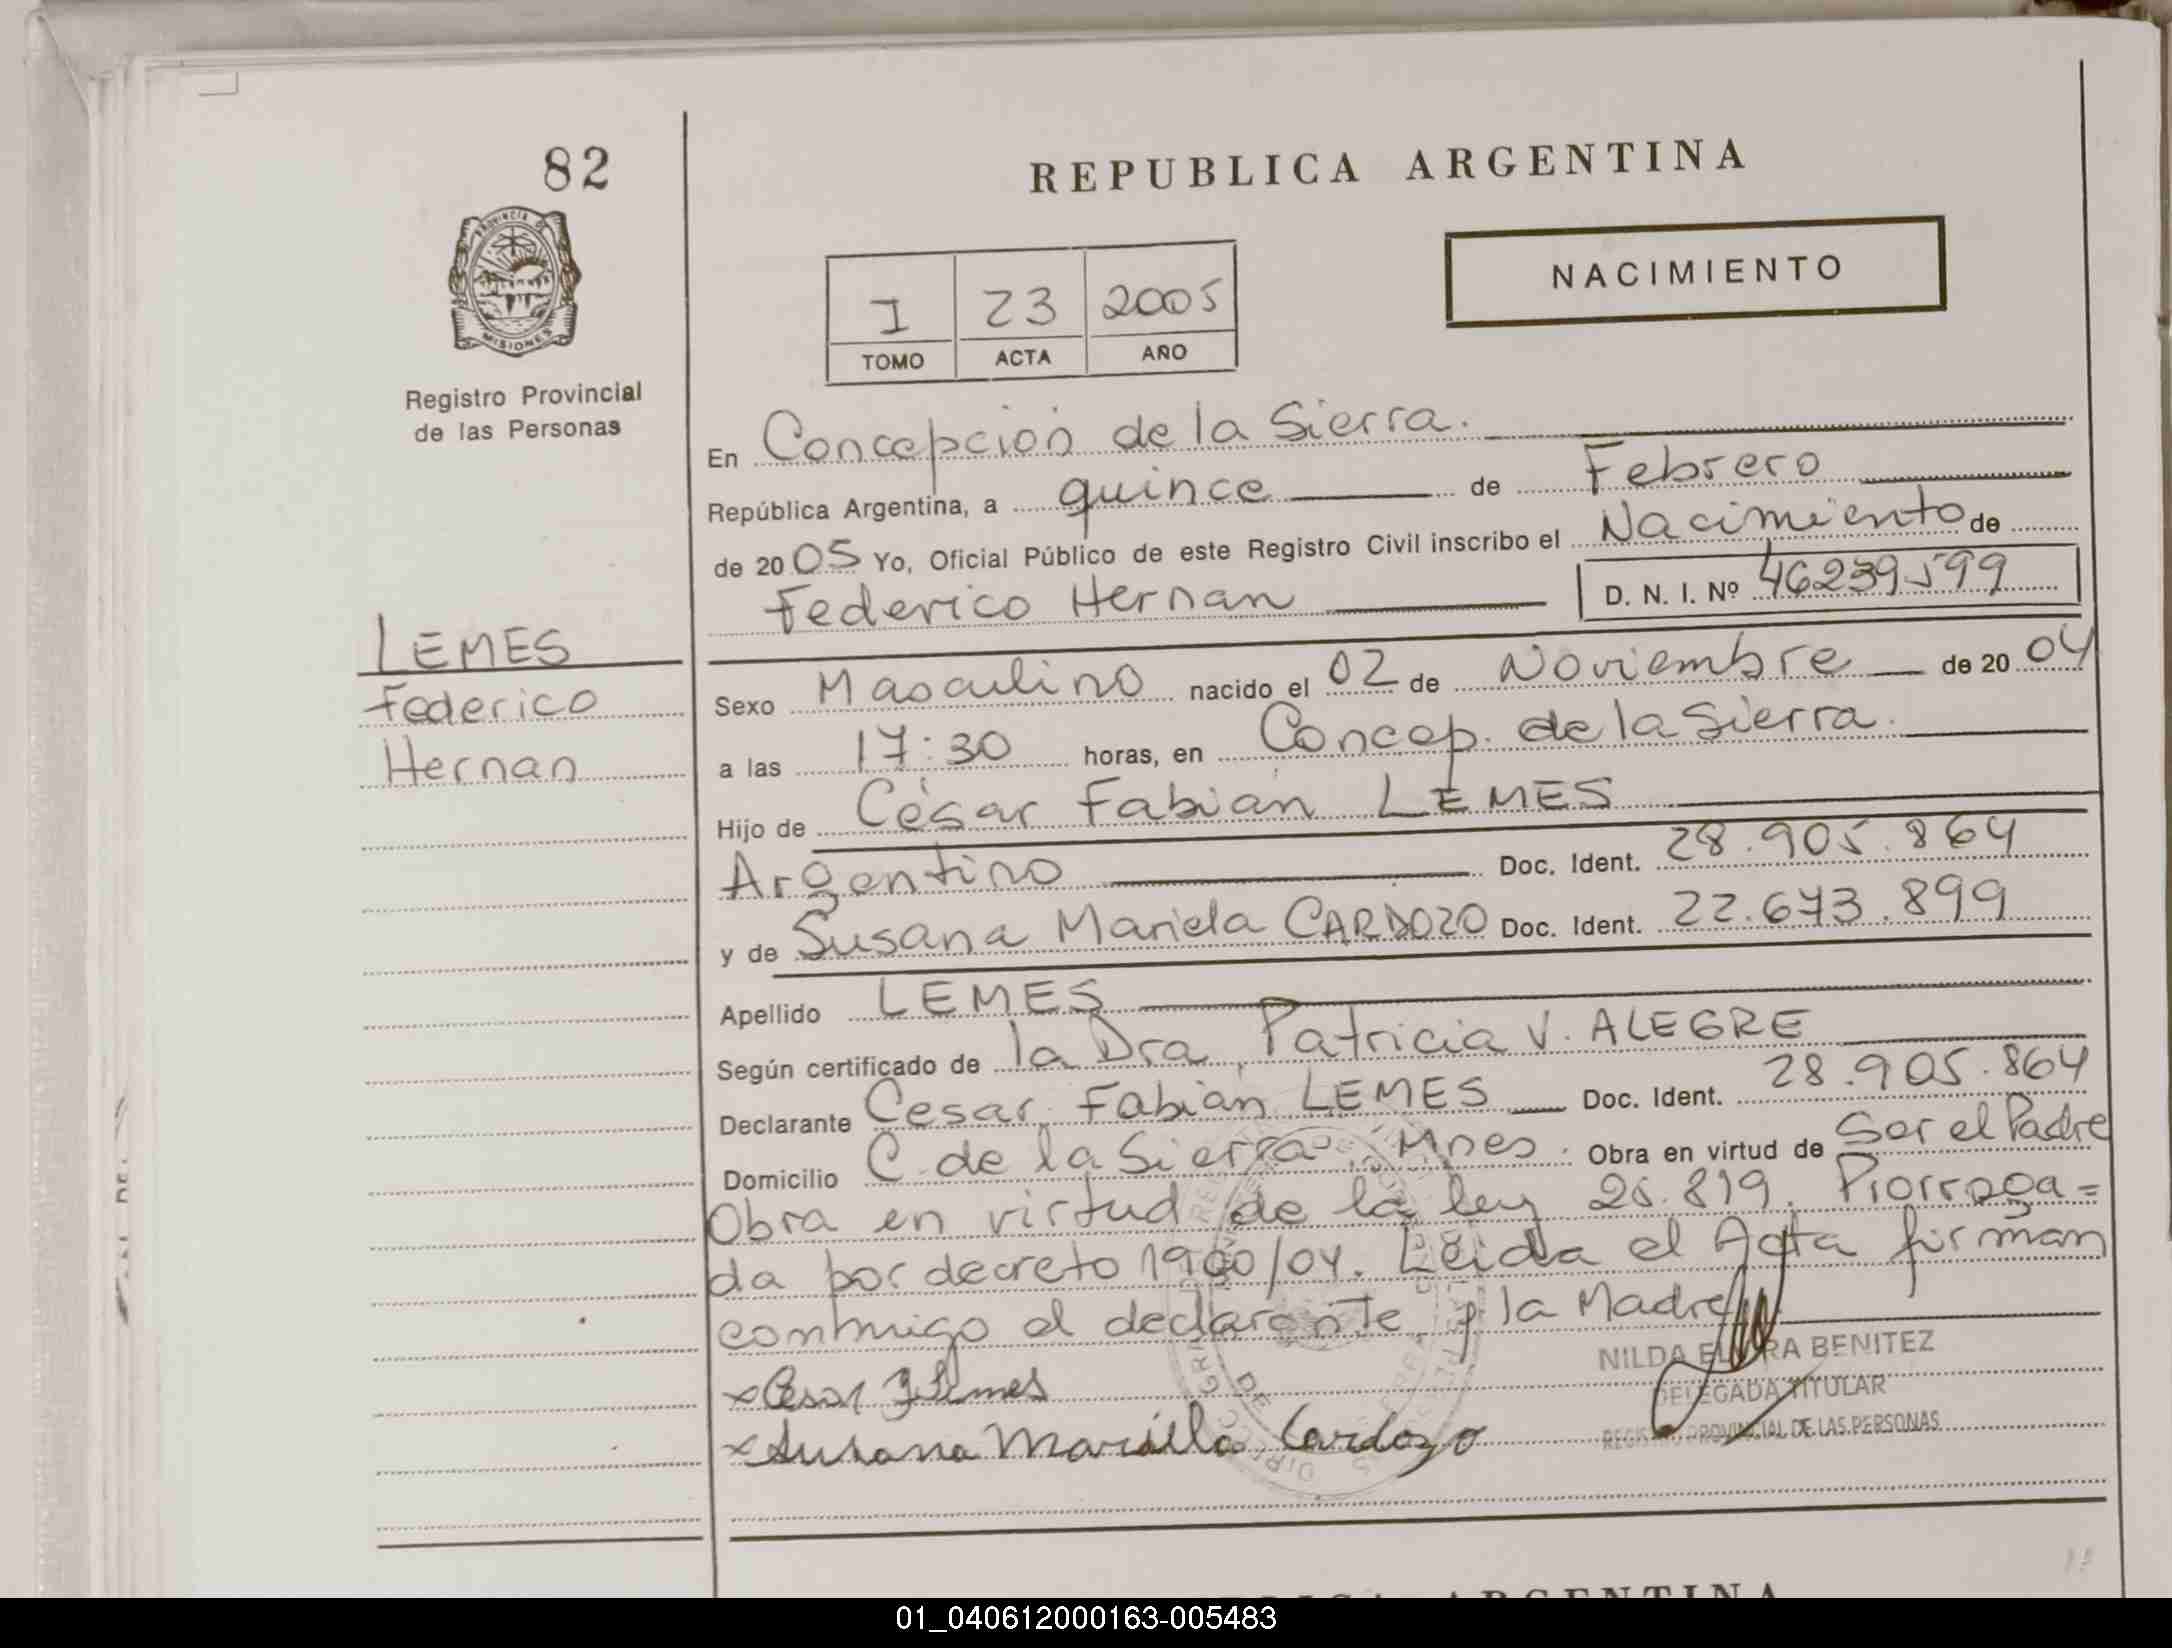 82
PROVINCIA DE
MISIONES
Registro Provincial
de las Personas
LEMES
Federico
Hernan
REPUBLICA ARGENTINA
NACIMIENTO
I 23 2005
TOMO ACTA AÑO
En Concepción de la Sierra.
República Argentina, a quince de Febrero
de 2005 Yo, Oficial Público de este Registro Civil inscribo el Nacimiento de
Federico Hernan D. N. I. Nº 46239599
Sexo Masculino nacido el 02 de Noviembre de 2004
a las 17:30 horas, en Concep. de la Sierra.
Hijo de César Fabián LEMES
Argentino Doc. Ident. 28.905.864
y de Susana Mariela CARDOZO Doc. Ident. 22.673.899
Apellido LEMES
Según certificado de la Dra. Patricia V. ALEGRE
Declarante Cesar Fabián LEMES Doc. Ident. 28.905.864
Domicilio C. de la Sierra, Mnes. Obra en virtud de Ser el Padre
Obra en virtud de la ley 25.819. Prorroga=
da por decreto 1900/04. Leida el Acta firman
conmigo el declarante y la Madre
NILDA ELVIRA BENITEZ
DELEGADA TITULAR
REGISTRO PROVINCIAL DE LAS PERSONAS
x Cesar F Lemes
x Susana Mariela Cardozo
ARGENTINA
01_040612000163-005483